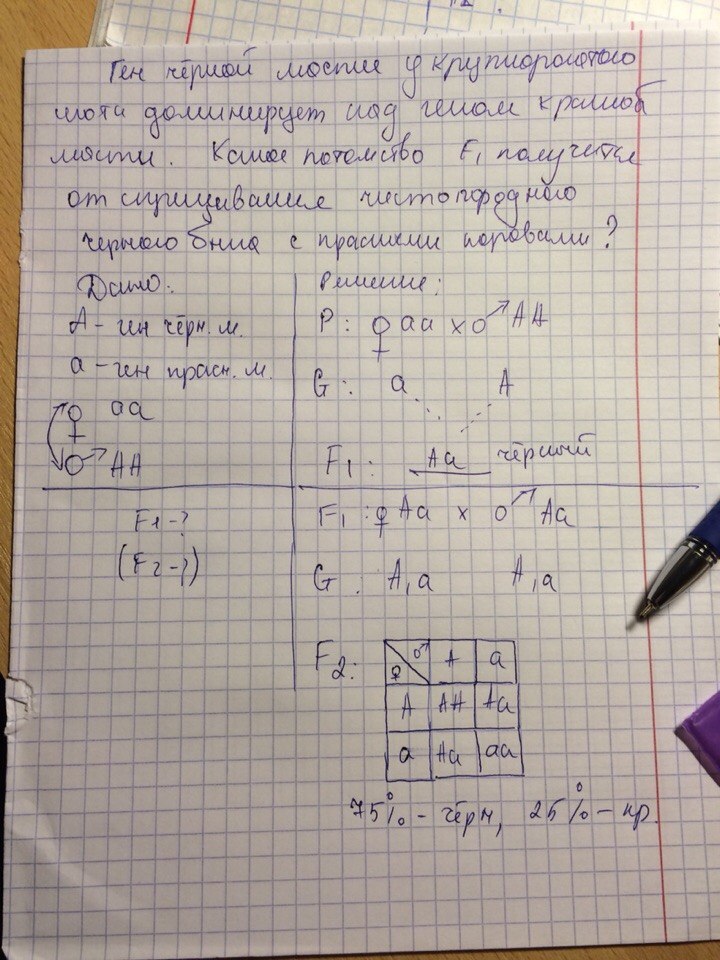 Ген чёрной масти у крупнорогатого
скота доминирует над геном красной
масти. Какое потомство F₁ получится
от скрещивания чистопородного
черного быка с красными коровами?
Дано:
A - ген чёрн. м.
a - ген красн. м.
♀ aa
♂ AA
F1-?
(F2-?)
Решение:
P: ♀ aa x ♂ AA
G: a A
F1: Aa чёрный
F1: ♀ Aa x ♂ Aa
G: A, a A, a
F2:
♀ ♂ A a
A AA Aa
a Aa aa
75% - чёрн, 25% - кр.